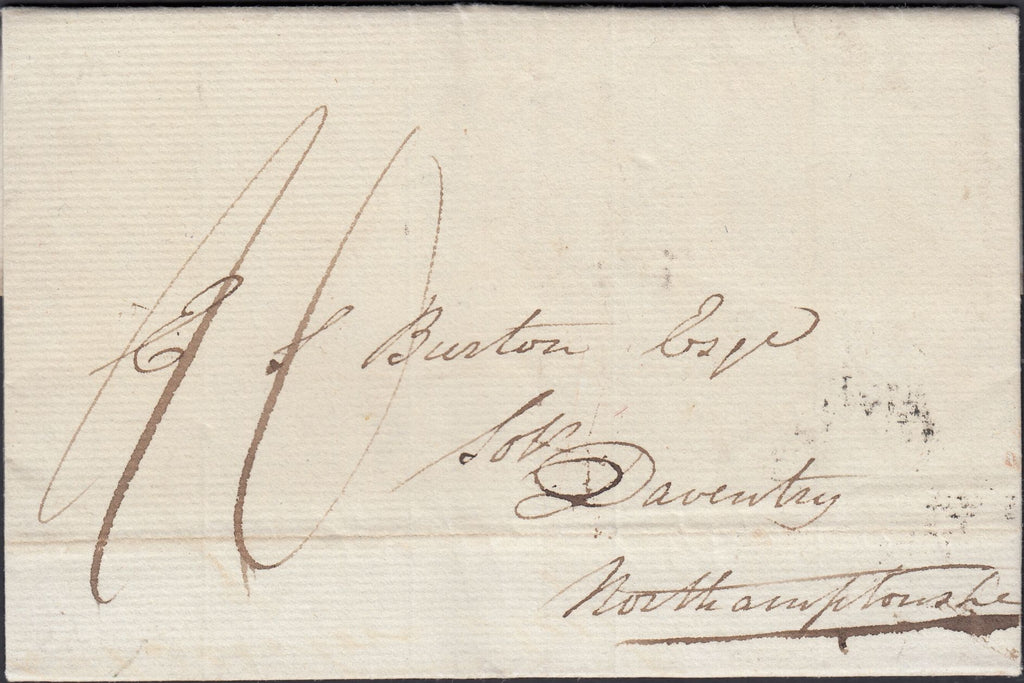 E S Burton Esqr
Solr
Daventry
Northamptonshe